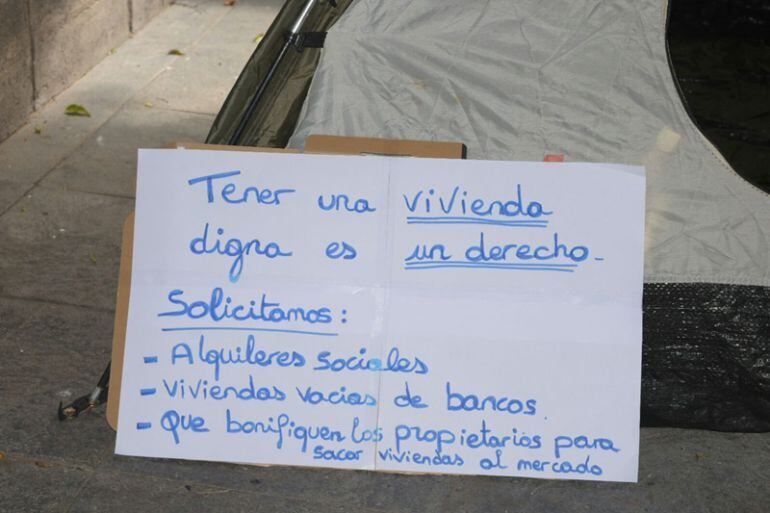 Tener una vivienda
digna es un derecho.
Solicitamos:
- Alquileres sociales
- Viviendas vacias de bancos.
- Que bonifiquen los propietarios para
sacar viviendas al mercado